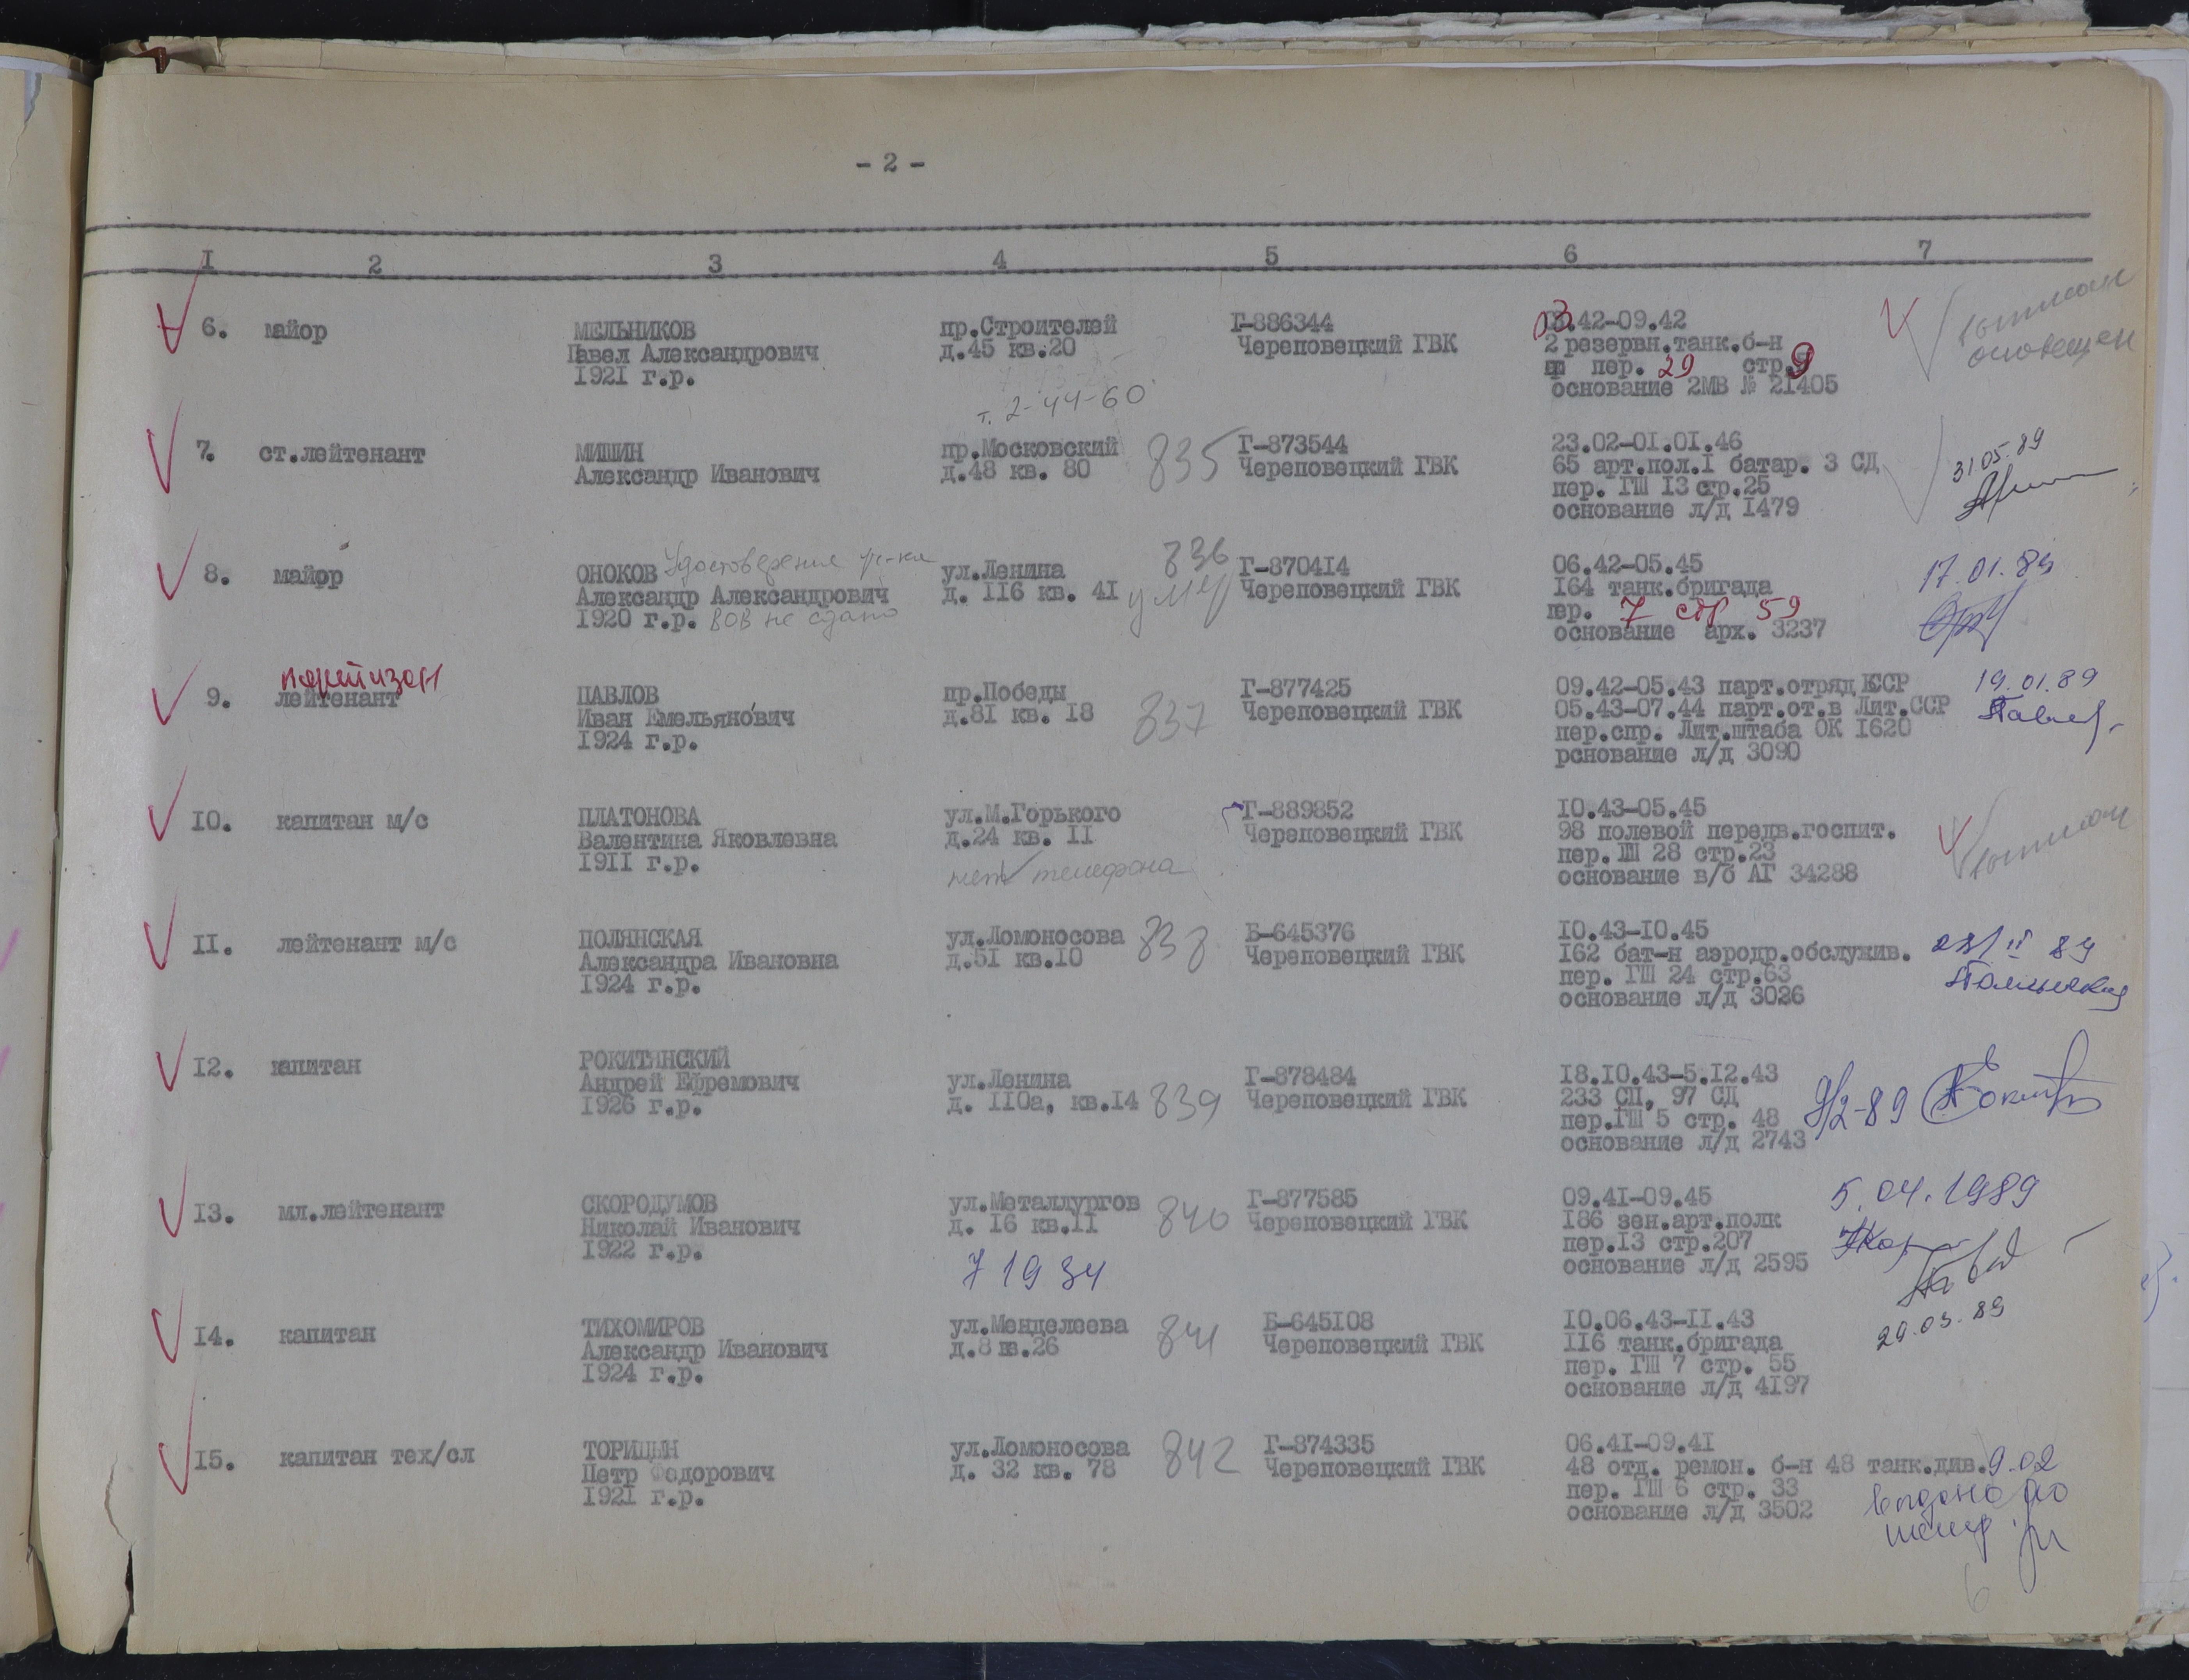 - 2 -
I 2 3 4 5 6 7
6. майор МЕЛЬНИКОВ пр.Строителей Г-886344 03.42-09.42
Павел Александрович д.45 кв.20 Череповецкий ГВК 2 резервн.танк.б-н
1921 г.р. пер. 29 стр.9
основание 2МВ № 21405
оповещен
т. 2-44-60
7. ст.лейтенант МИШИН пр.Московский 835 Г-873544 23.02-01.01.46 31.05.89
Александр Иванович д.48 кв. 80 Череповецкий ГВК 65 арт.пол.I батар. 3 СД
пер. ГШ I3 стр.25
основание л/д I479
8. майор ОНОКОВ Удостоверение уч-ка ул.Ленина 836 Г-870414 06.42-05.45 17.01.89
Александр Александрович д. II6 кв. 4I умер Череповецкий ГВК I64 танк.бригада
1920 г.р. ВОВ не сдано пер. 7 стр 59
основание арх. 3237
партизан
9. лейтенант ПАВЛОВ пр.Победы Г-877425 09.42-05.43 парт.отряд КССР 19.01.89
Иван Емельянович д.8I кв. I8 837 Череповецкий ГВК 05.43-07.44 парт.от.в Лит.ССР
1924 г.р. пер.спр. Лит.штаба ОК I620
рснование л/д 3090
I0. капитан м/с ПЛАТОНОВА ул.М.Горького Г-889852 I0.43-05.45
Валентина Яковлевна д.24 кв. II Череповецкий ГВК 98 полевой передв.госпит.
I9II г.р. нет телефона пер. ГШ 28 стр.23
основание в/б АГ 34288
II. лейтенант м/с ПОЛЯНСКАЯ ул.Ломоносова 838 Б-645376 I0.43-I0.45
Александра Ивановна д.5I кв.I0 Череповецкий ГВК I62 бат-н аэродр.обслужив.
I924 г.р. пер. ГШ 24 стр.63
основание л/д 3026
I2. капитан РОКИТЯНСКИЙ Г-878484 I8.I0.43-5.I2.43
Андрей Ефремович ул.Ленина Череповецкий ГВК 233 СП, 97 СД
I926 г.р. д. II0а, кв.I4 839 пер.ГШ 5 стр. 48
основание л/д 2743
I3. мл.лейтенант СКОРОДУМОВ ул.Металлургов 840 Г-877585 09.4I-09.45 5.04.1989
Николай Иванович д. I6 кв.II Череповецкий ГВК I86 зен.арт.полк
I922 г.р. пер.I3 стр.207
7 19 34 основание л/д 2595
I4. капитан ТИХОМИРОВ ул.Менделеева 841 Б-645I08 I0.06.43-II.43 29.03.89
Александр Иванович д.8 кв.26 Череповецкий ГВК II6 танк.бригада
I924 г.р. пер. ГШ 7 стр. 55
основание л/д 4I97
I5. капитан тех/сл ТОРИЦЫН ул.Ломоносова 842 Г-874335 06.4I-09.4I
Петр Федорович д. 32 кв. 78 Череповецкий ГВК 48 отд. ремон. б-н 48 танк.див. 9.02
I92I г.р. пер. ГШ 6 стр. 33 выдано
основание л/д 3502